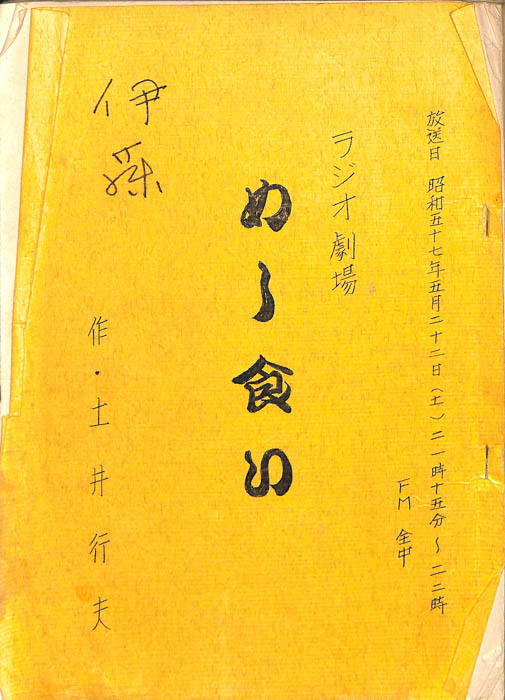 放送日 昭和五十七年五月二十二日（土）二一時十五分〜二二時
FM 全中
ラジオ劇場
めし食い
作・土井行夫
伊孫